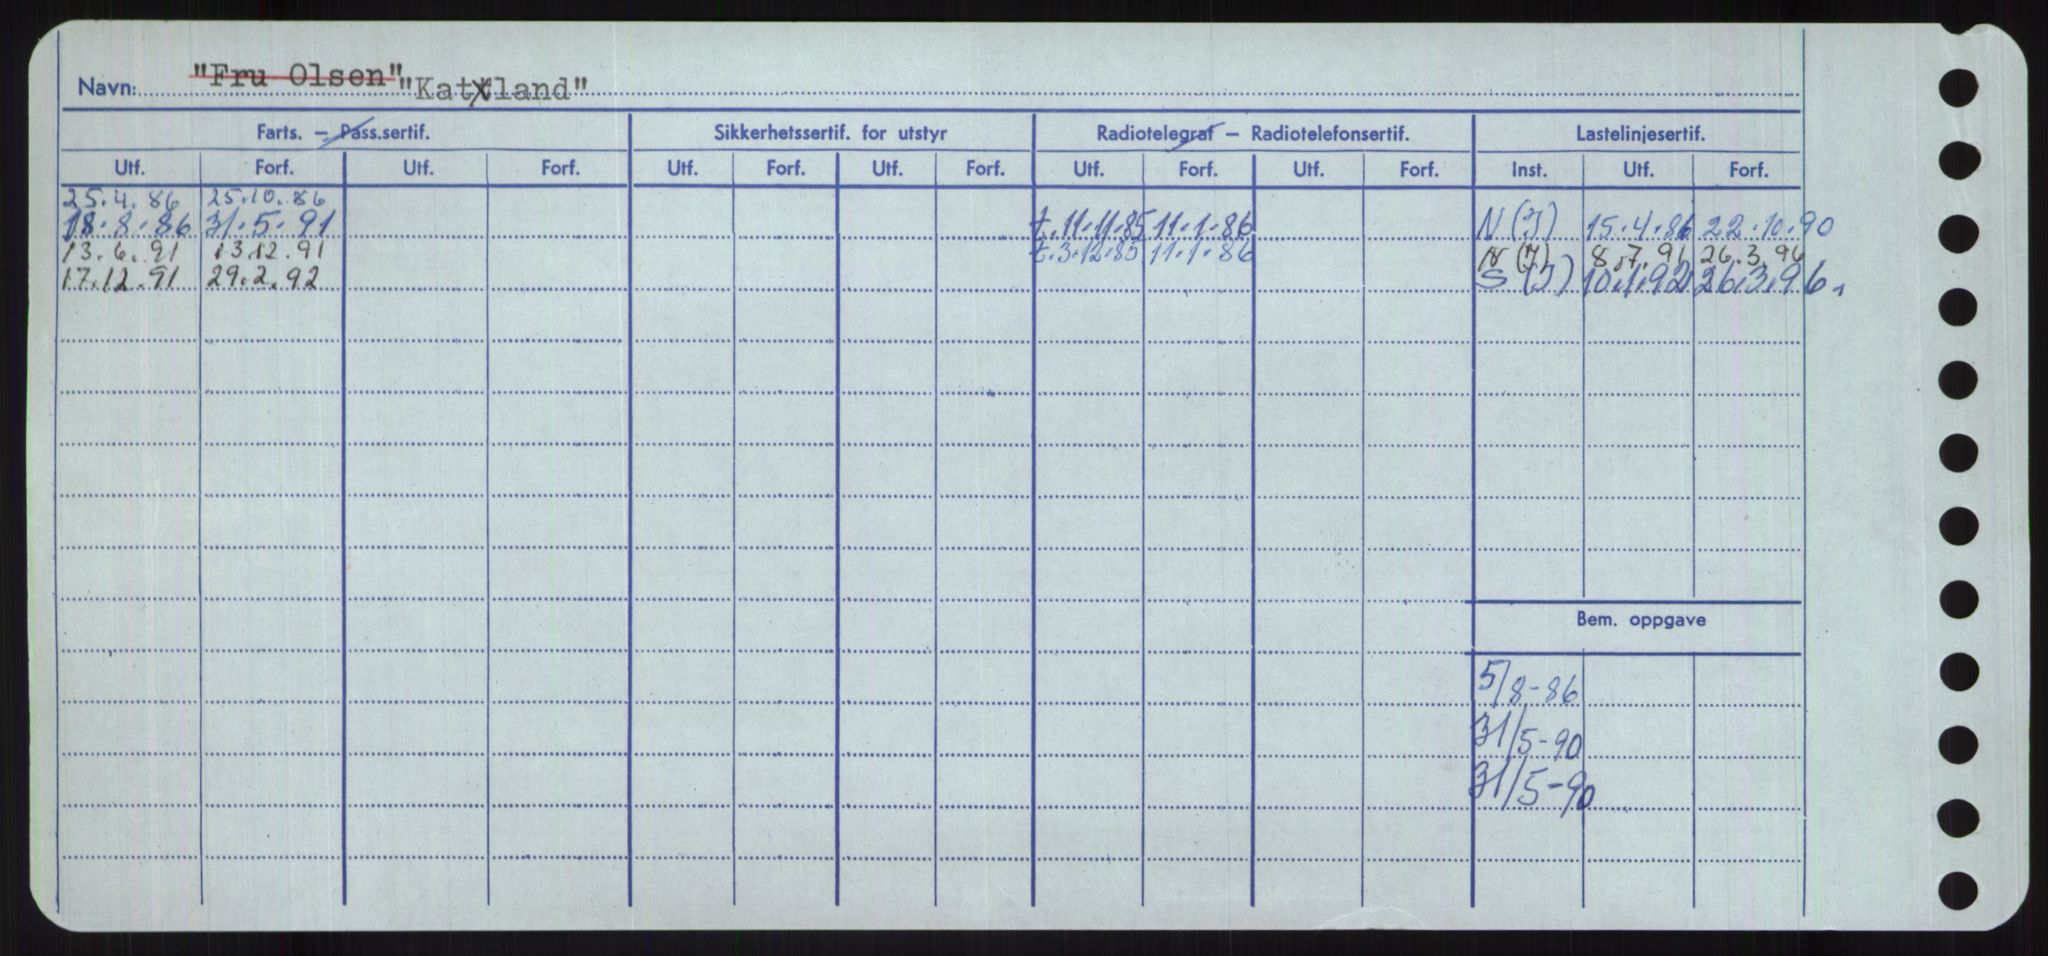 Navn: "Fru Olsen" "Katland"
Farts. – Pass.sertif. Sikkerhetssertif. for utstyr Radiotelegraf – Radiotelefonsertif. Lastelinjesertif.
Utf. Forf. Utf. Forf. Utf. Forf. Utf. Forf. Utf. Forf. Utf. Forf. Inst. Utf. Forf.
25.4.86 25.10.86
18.8.86 31.5.91 t.11.11.85 11.1.86 N(I) 15.4.86 22.10.90
13.6.91 13.12.91 t.3.12.85 11.1.86 N(I) 8.7.91 26.3.96
17.12.91 29.2.92 S(I) 10.1.92 26.3.96.
Bem. oppgave
5/8-86
31/5-90
31/5-90